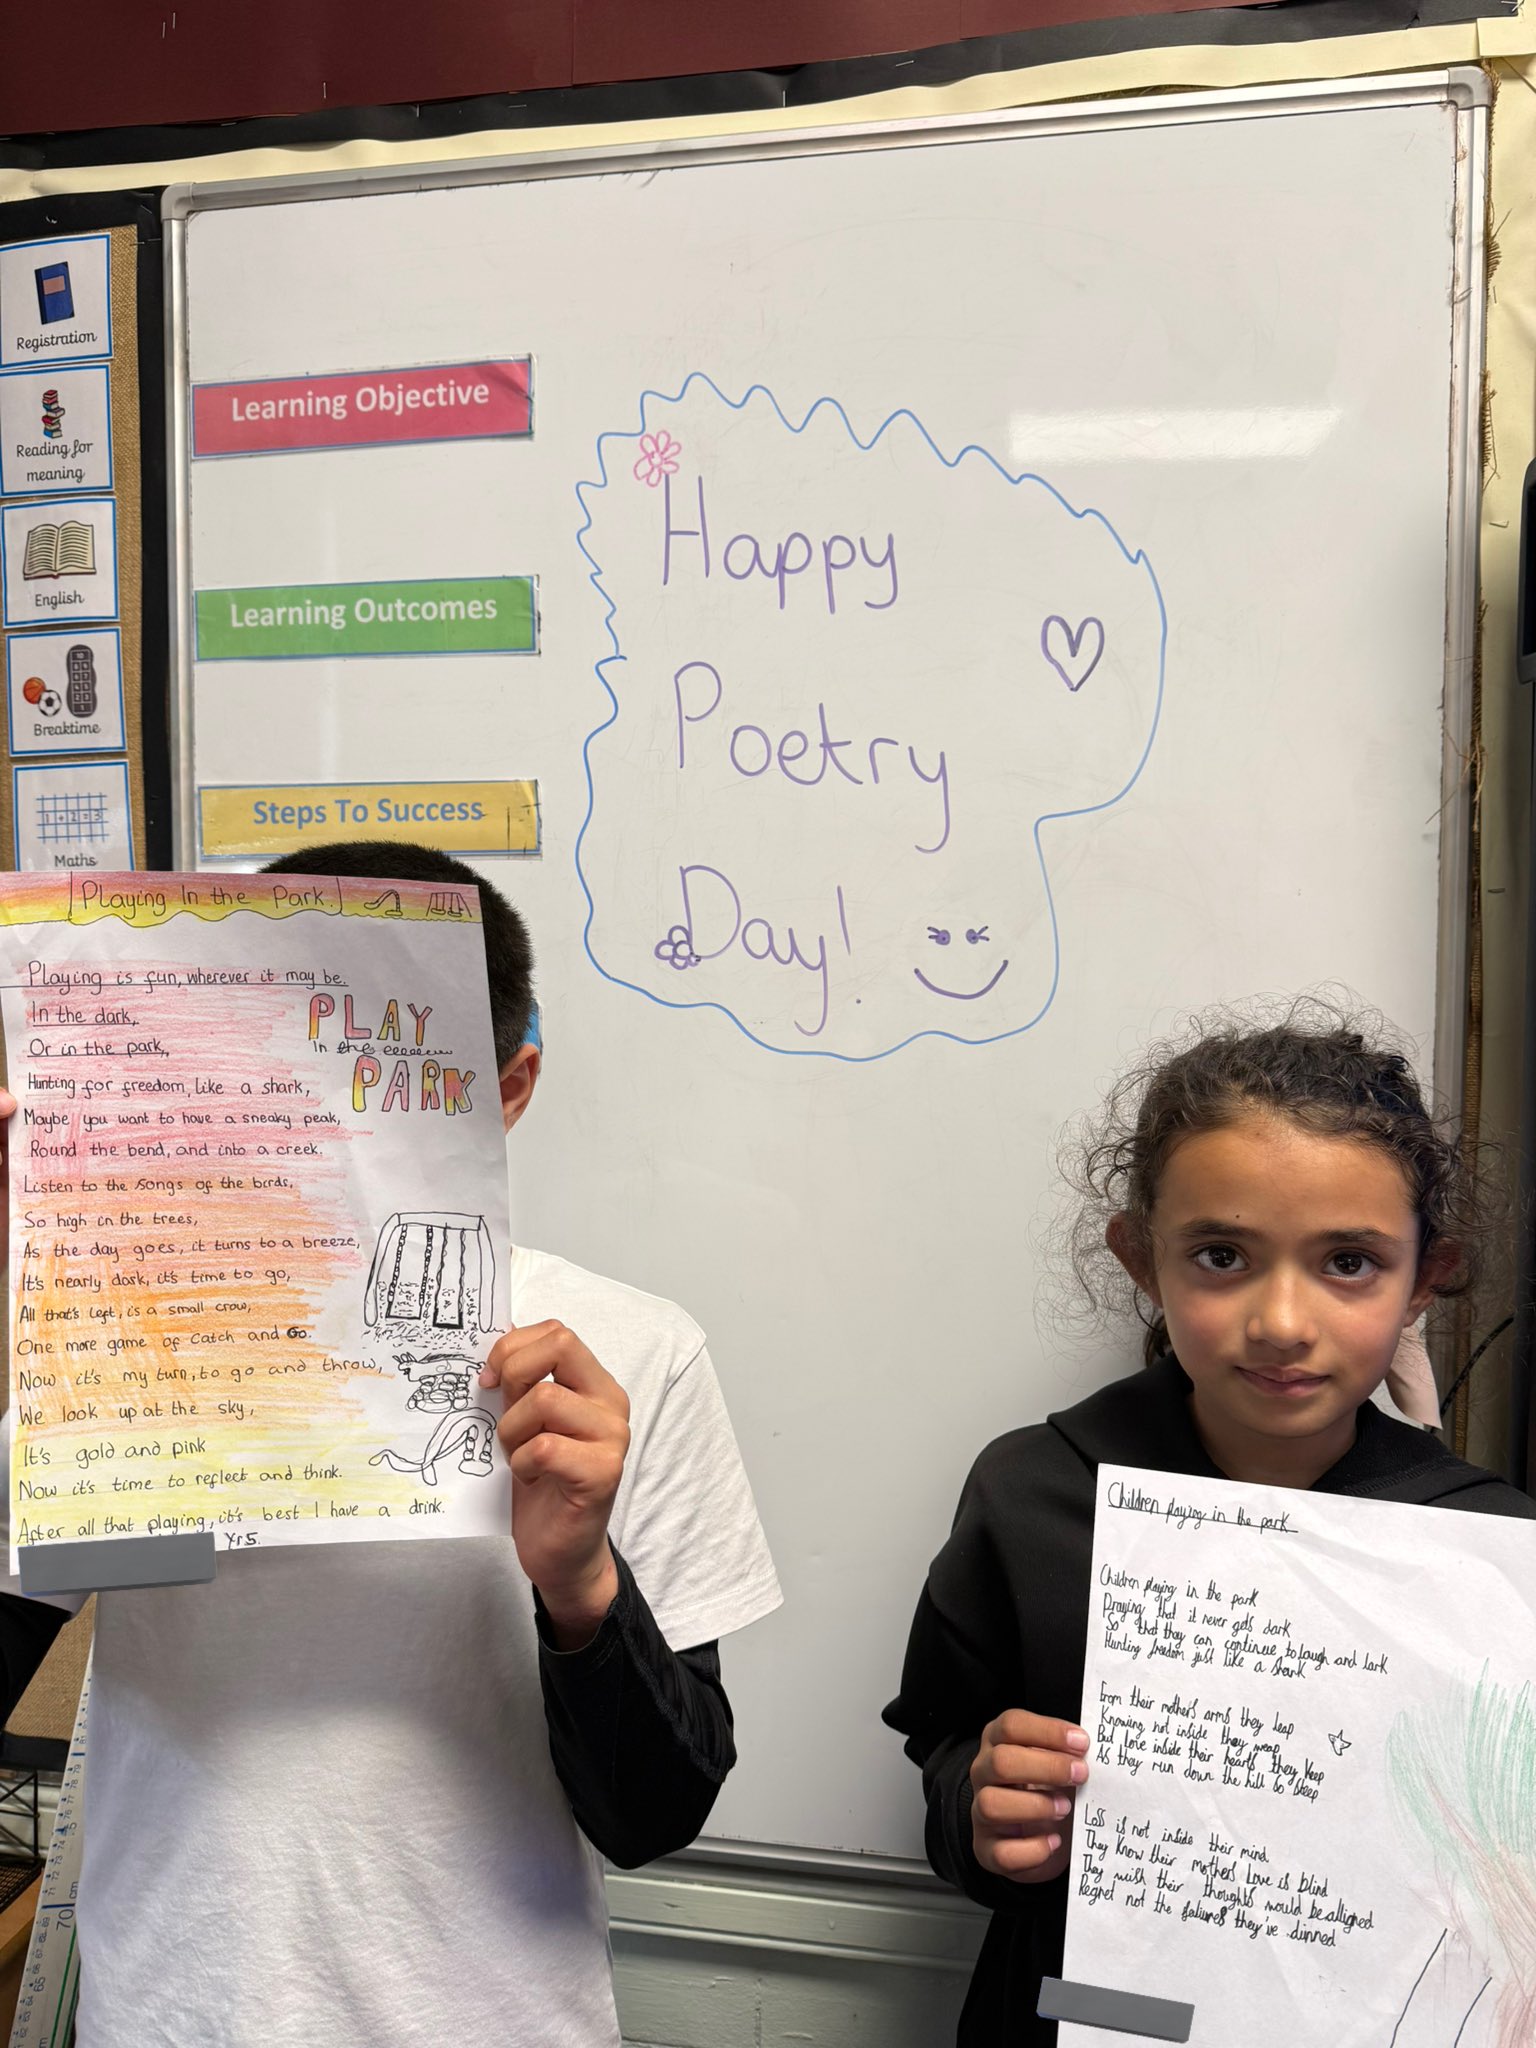 Registration
Reading for
meaning
English
Breaktime
1 + 2 = 3
Maths
Learning Objective
Learning Outcomes
Steps To Success
Happy
Poetry
Day!
Playing In the Park.
Playing is fun, wherever it may be.
In the dark,
Or in the park,
Hunting for freedom, like a shark,
Maybe you want to have a sneaky peak,
Round the bend, and into a creek.
Listen to the songs of the birds,
So high in the trees,
As the day goes, it turns to a breeze,
It's nearly dark, it's time to go,
All that's left, is a small crow,
One more game of catch and Go.
Now it's my turn, to go and throw,
We look up at the sky,
It's gold and pink
Now it's time to reflect and think.
After all that playing, it's best I have a drink.
Yr5.
PLAY
In the
PARK
Children playing in the park
Children playing in the park
Praying that it never gets dark
So that they can continue to laugh and lark
Hunting freedom just like a shark
From their mothers arms they leap
Knowing not inside they weep
But love inside their hearts they keep
As they run down the hill so steep
Loss is not inside their mind
They know their mothers love is blind
They wish their thoughts would be alligned
Regret not the failures they've dinned
70
cm
65